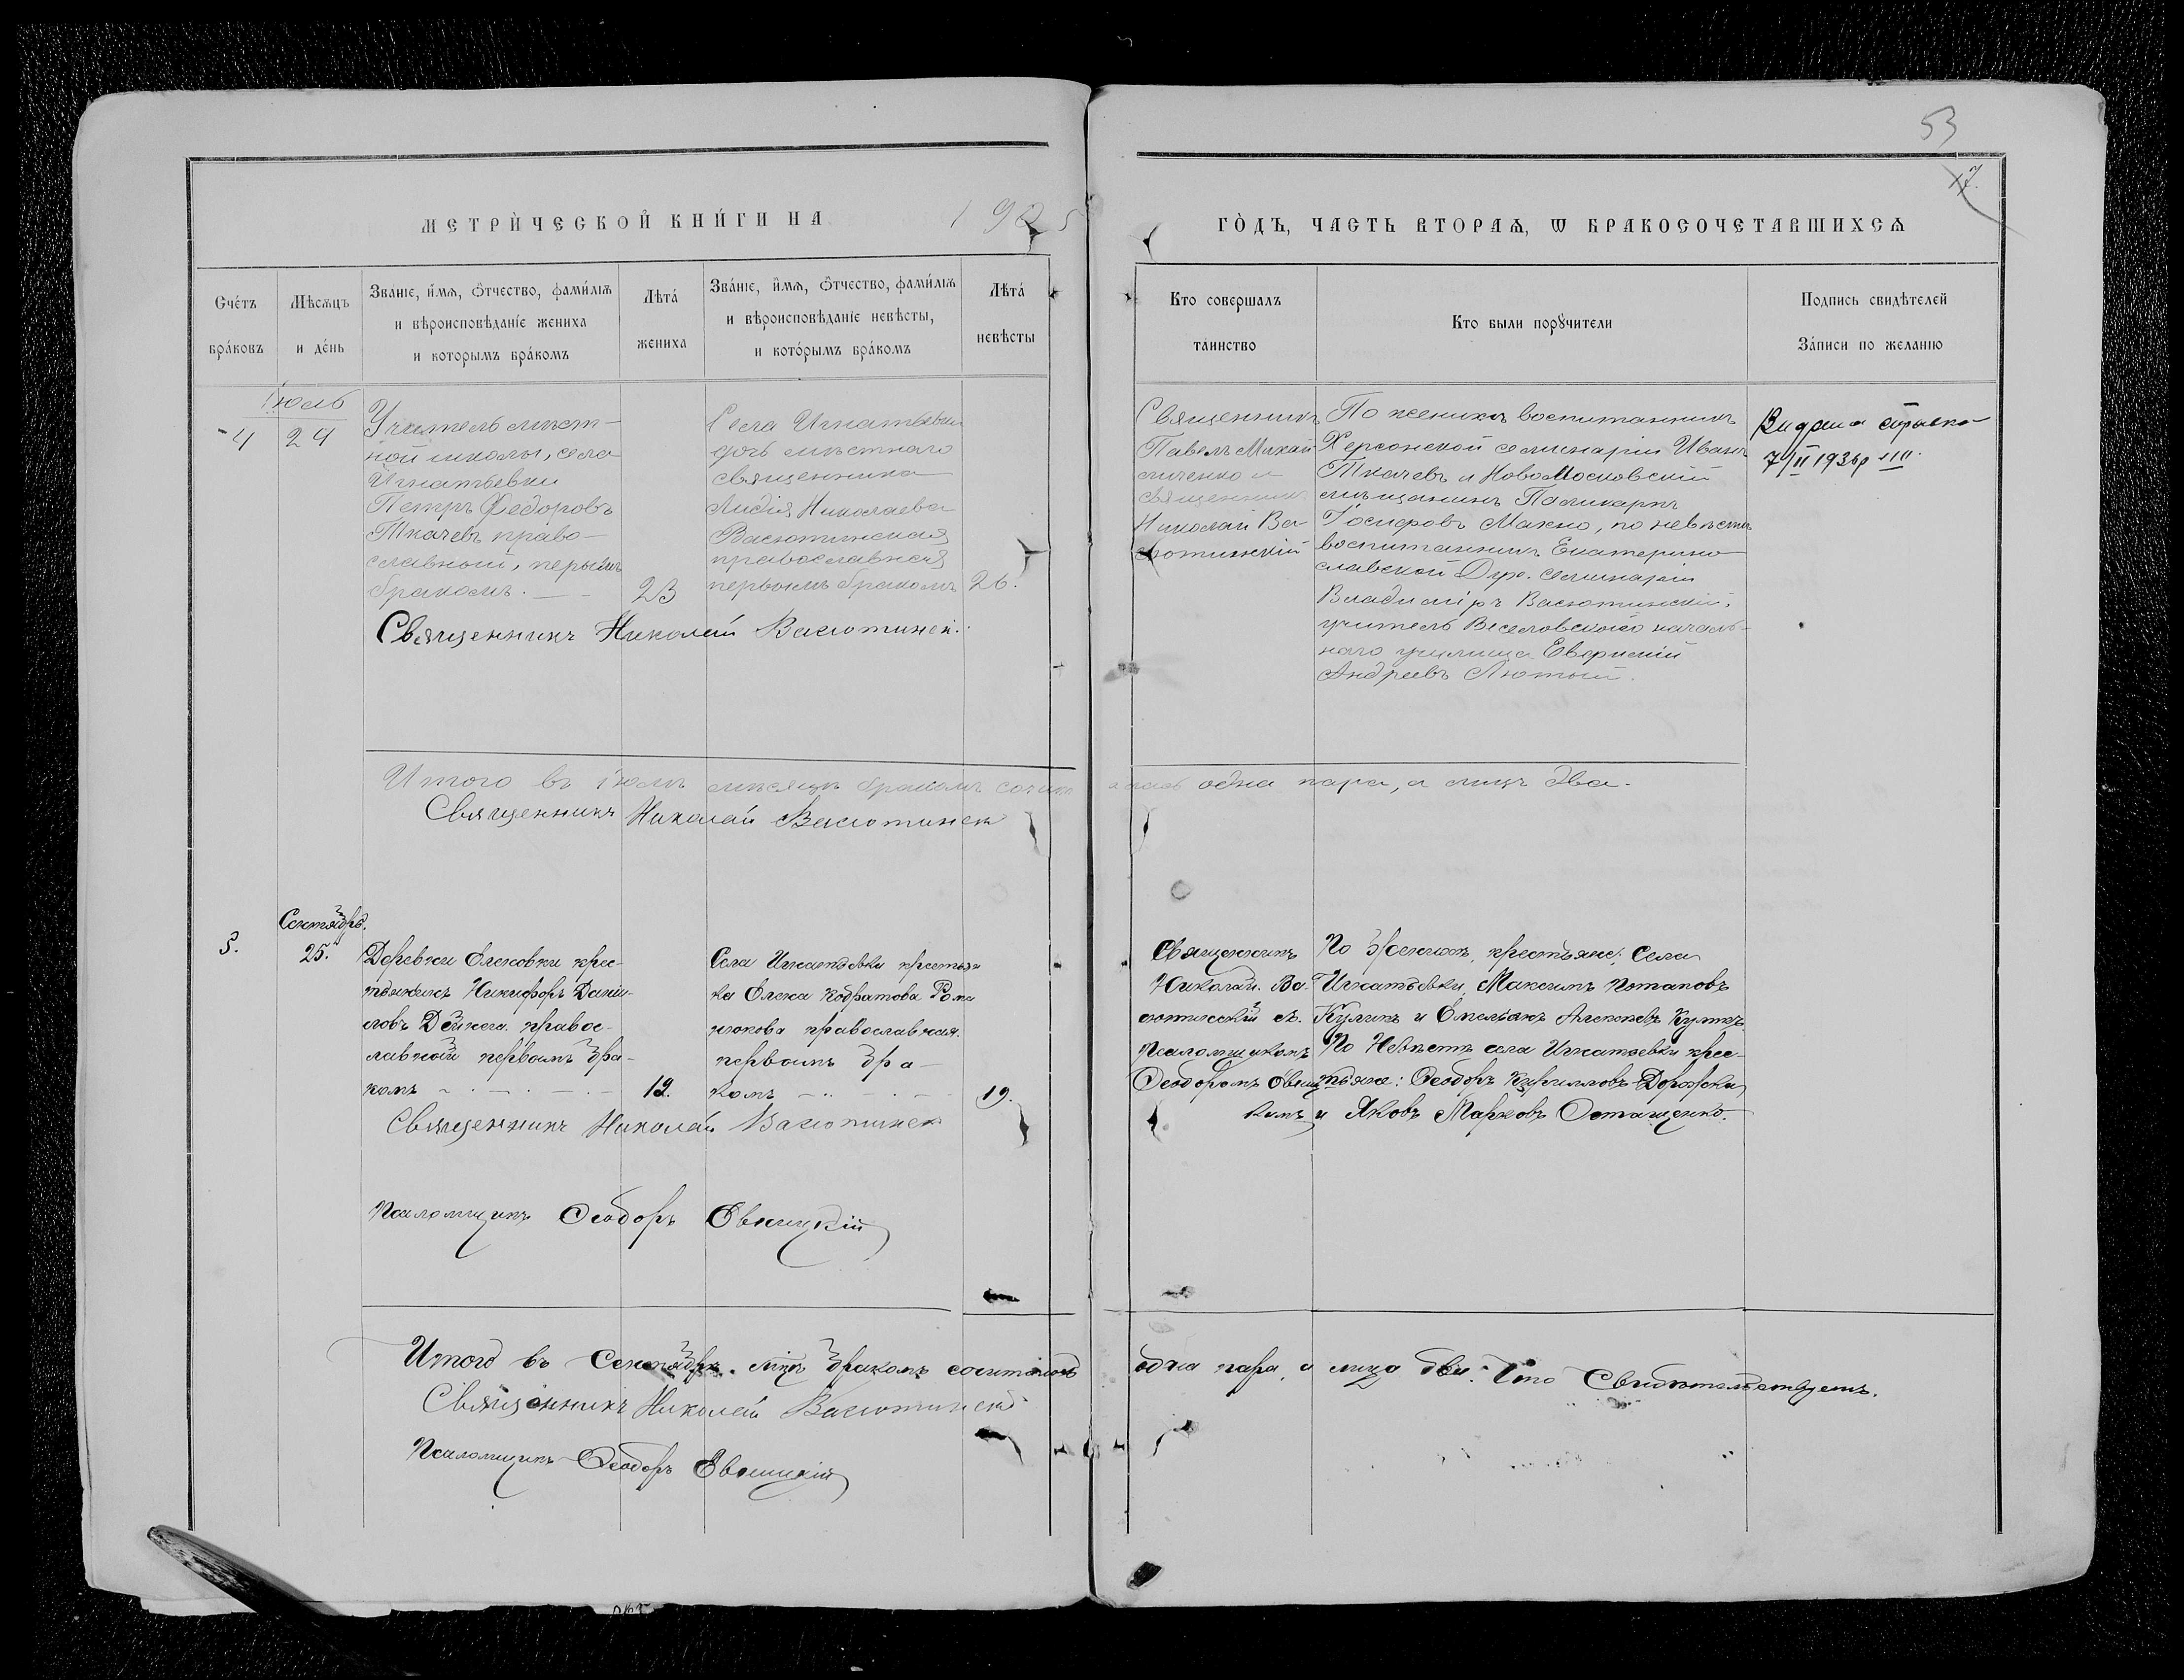 53
17.
МЕТРИ́ЧЕСКОЙ КНИ́ГИ НА 1905
ГО́ДЪ, ЧАСТЬ ВТОРАѦ, Ѡ БРАКОСОЧЕТАВШИХСѦ
Сче́тъ
бра́ковъ
Мѣсѧцъ
и де́нь
Зва́нїе, и́мѧ, ѻ́тчество, фами́лїѧ
и вѣроисповѣданїе жениха
и которымъ бра́комъ
Лѣта́
жениха
Зва́нїе, и́мѧ, ѻ́тчество, фами́лїѧ
и вѣроисповѣданїе невѣсты,
и кото́рымъ бра́комъ
Лѣта́
невѣсты
Кто совершалъ
таинство
Кто были порꙋчители
Подпись свидѣтелей
За́писи по желанїю
Іюль
4
24
Учитель мѣст-
ной школы, села
Игнатьевки
Петръ Федоровъ
Ткачевъ право-
славный, первымъ
бракомъ.
23
Села Игнатьевки
дочь мѣстнаго
священника
Лидія Николаева
Васютинская
православная
первымъ бракомъ
26.
Священникъ
Павелъ Михай
личенко и
священникъ
Николай Ва-
сютинскій
По женихѣ воспитанникъ
Херсонской семинаріи Иванъ
Ткачевъ и НовоМосковскій
мѣщанинъ Поликарпъ
Іосифовъ Махно, по невѣстѣ
воспитанникъ Екатерино
славской Дух. семинаріи
Владиміръ Васютинскій,
учитель Веселовскаго началь-
наго училища
Андреевъ Лютый.
Видана справка
7/II 193
Священникъ Николай Васютинск.
Итого въ Іюлѣ мѣсяцѣ бракомъ сочита лась одна пара, а лицъ два.
Священникъ Николай Васютинск
Сентябрь.
5.
25.
Деревни Еленовки крес-
тьянинъ Никифоръ Даніи-
ловъ Дейнега правос-
лавный первымъ бра-
комъ
19.
Села Игнатьевки крестьян
ка Елена Кодратова Рома
нюкова православная.
первымъ бра-
комъ
19.
Священникъ
Николай Ва-
сютинскій съ.
Псаломщикомъ
Ѳеодоромъ Овниц
кимъ
По Женихѣ, крестьяне: Села
Игнатьевки, Максимъ Потаповъ
Куликъ и Емельянъ Алексеевъ Куликъ
По Невѣстѣ села Игнатьевки крес-
тьяне: Ѳеодоръ Кирилловъ
и Яковъ Марковъ Осташенко.
Священникъ Николай Васютинск
Псаломщикъ Ѳеодоръ Овницкій
Итого въ Сентябрѣ м-цѣ бракомъ сочиталось одна пара, а лица два. Что Свидѣтельствуетъ.
Священникъ Николай Васютинск
Псаломщикъ Ѳеодоръ Овницкій